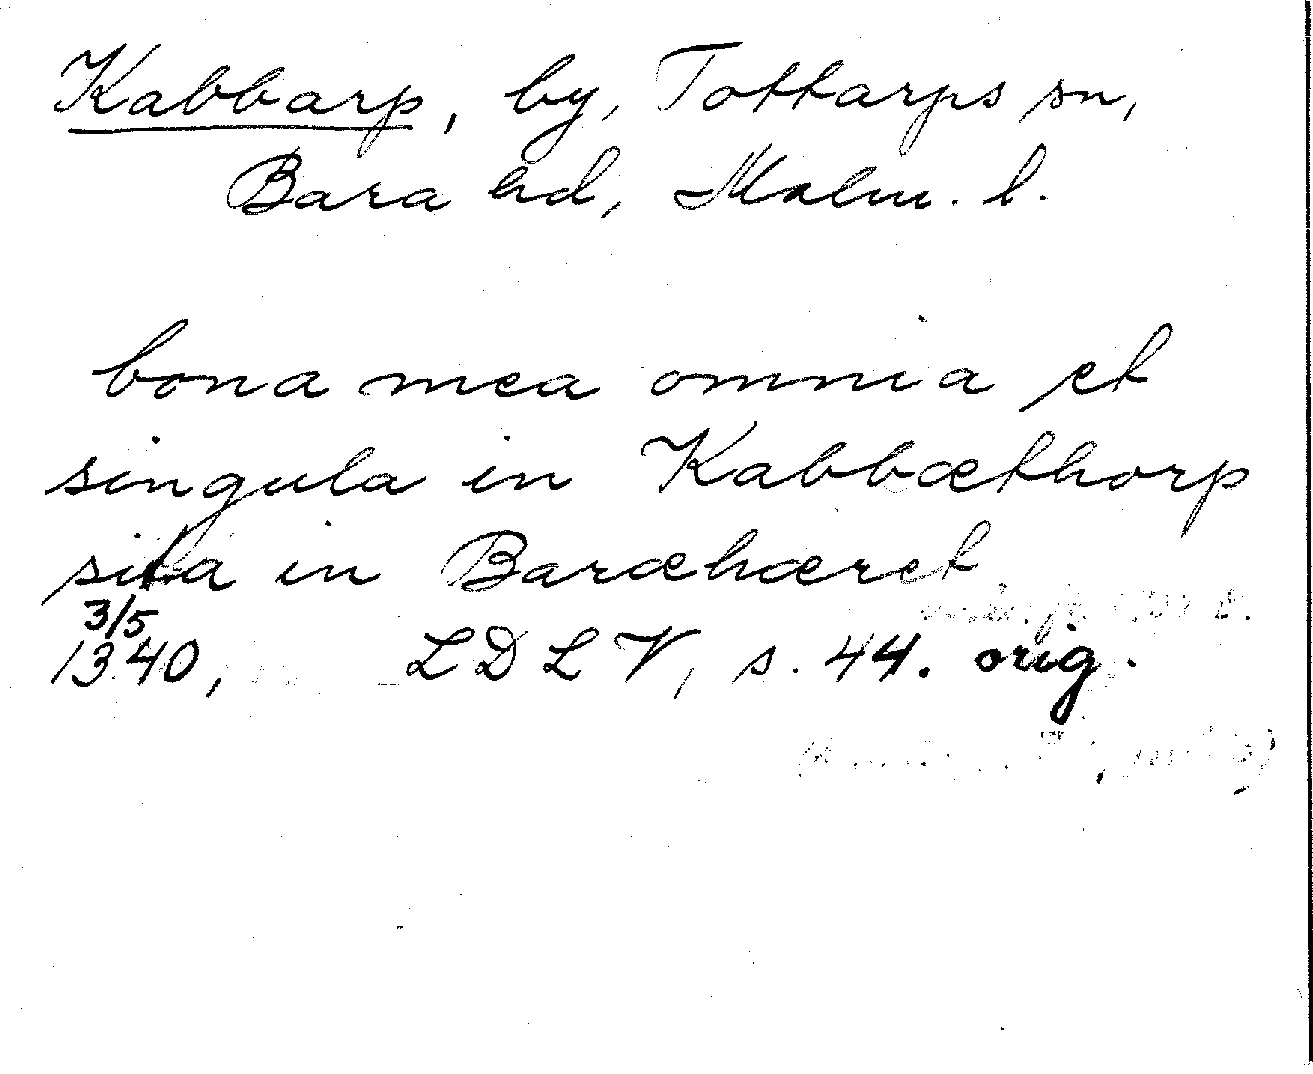 Kabbarp, by, Tottarps sn,
Bara hd, Malm. l.
bona mea omnia et
singula in Kabbæthorp
sita in Baræhæret
3/5
1340, LDL V, s. 44. orig.